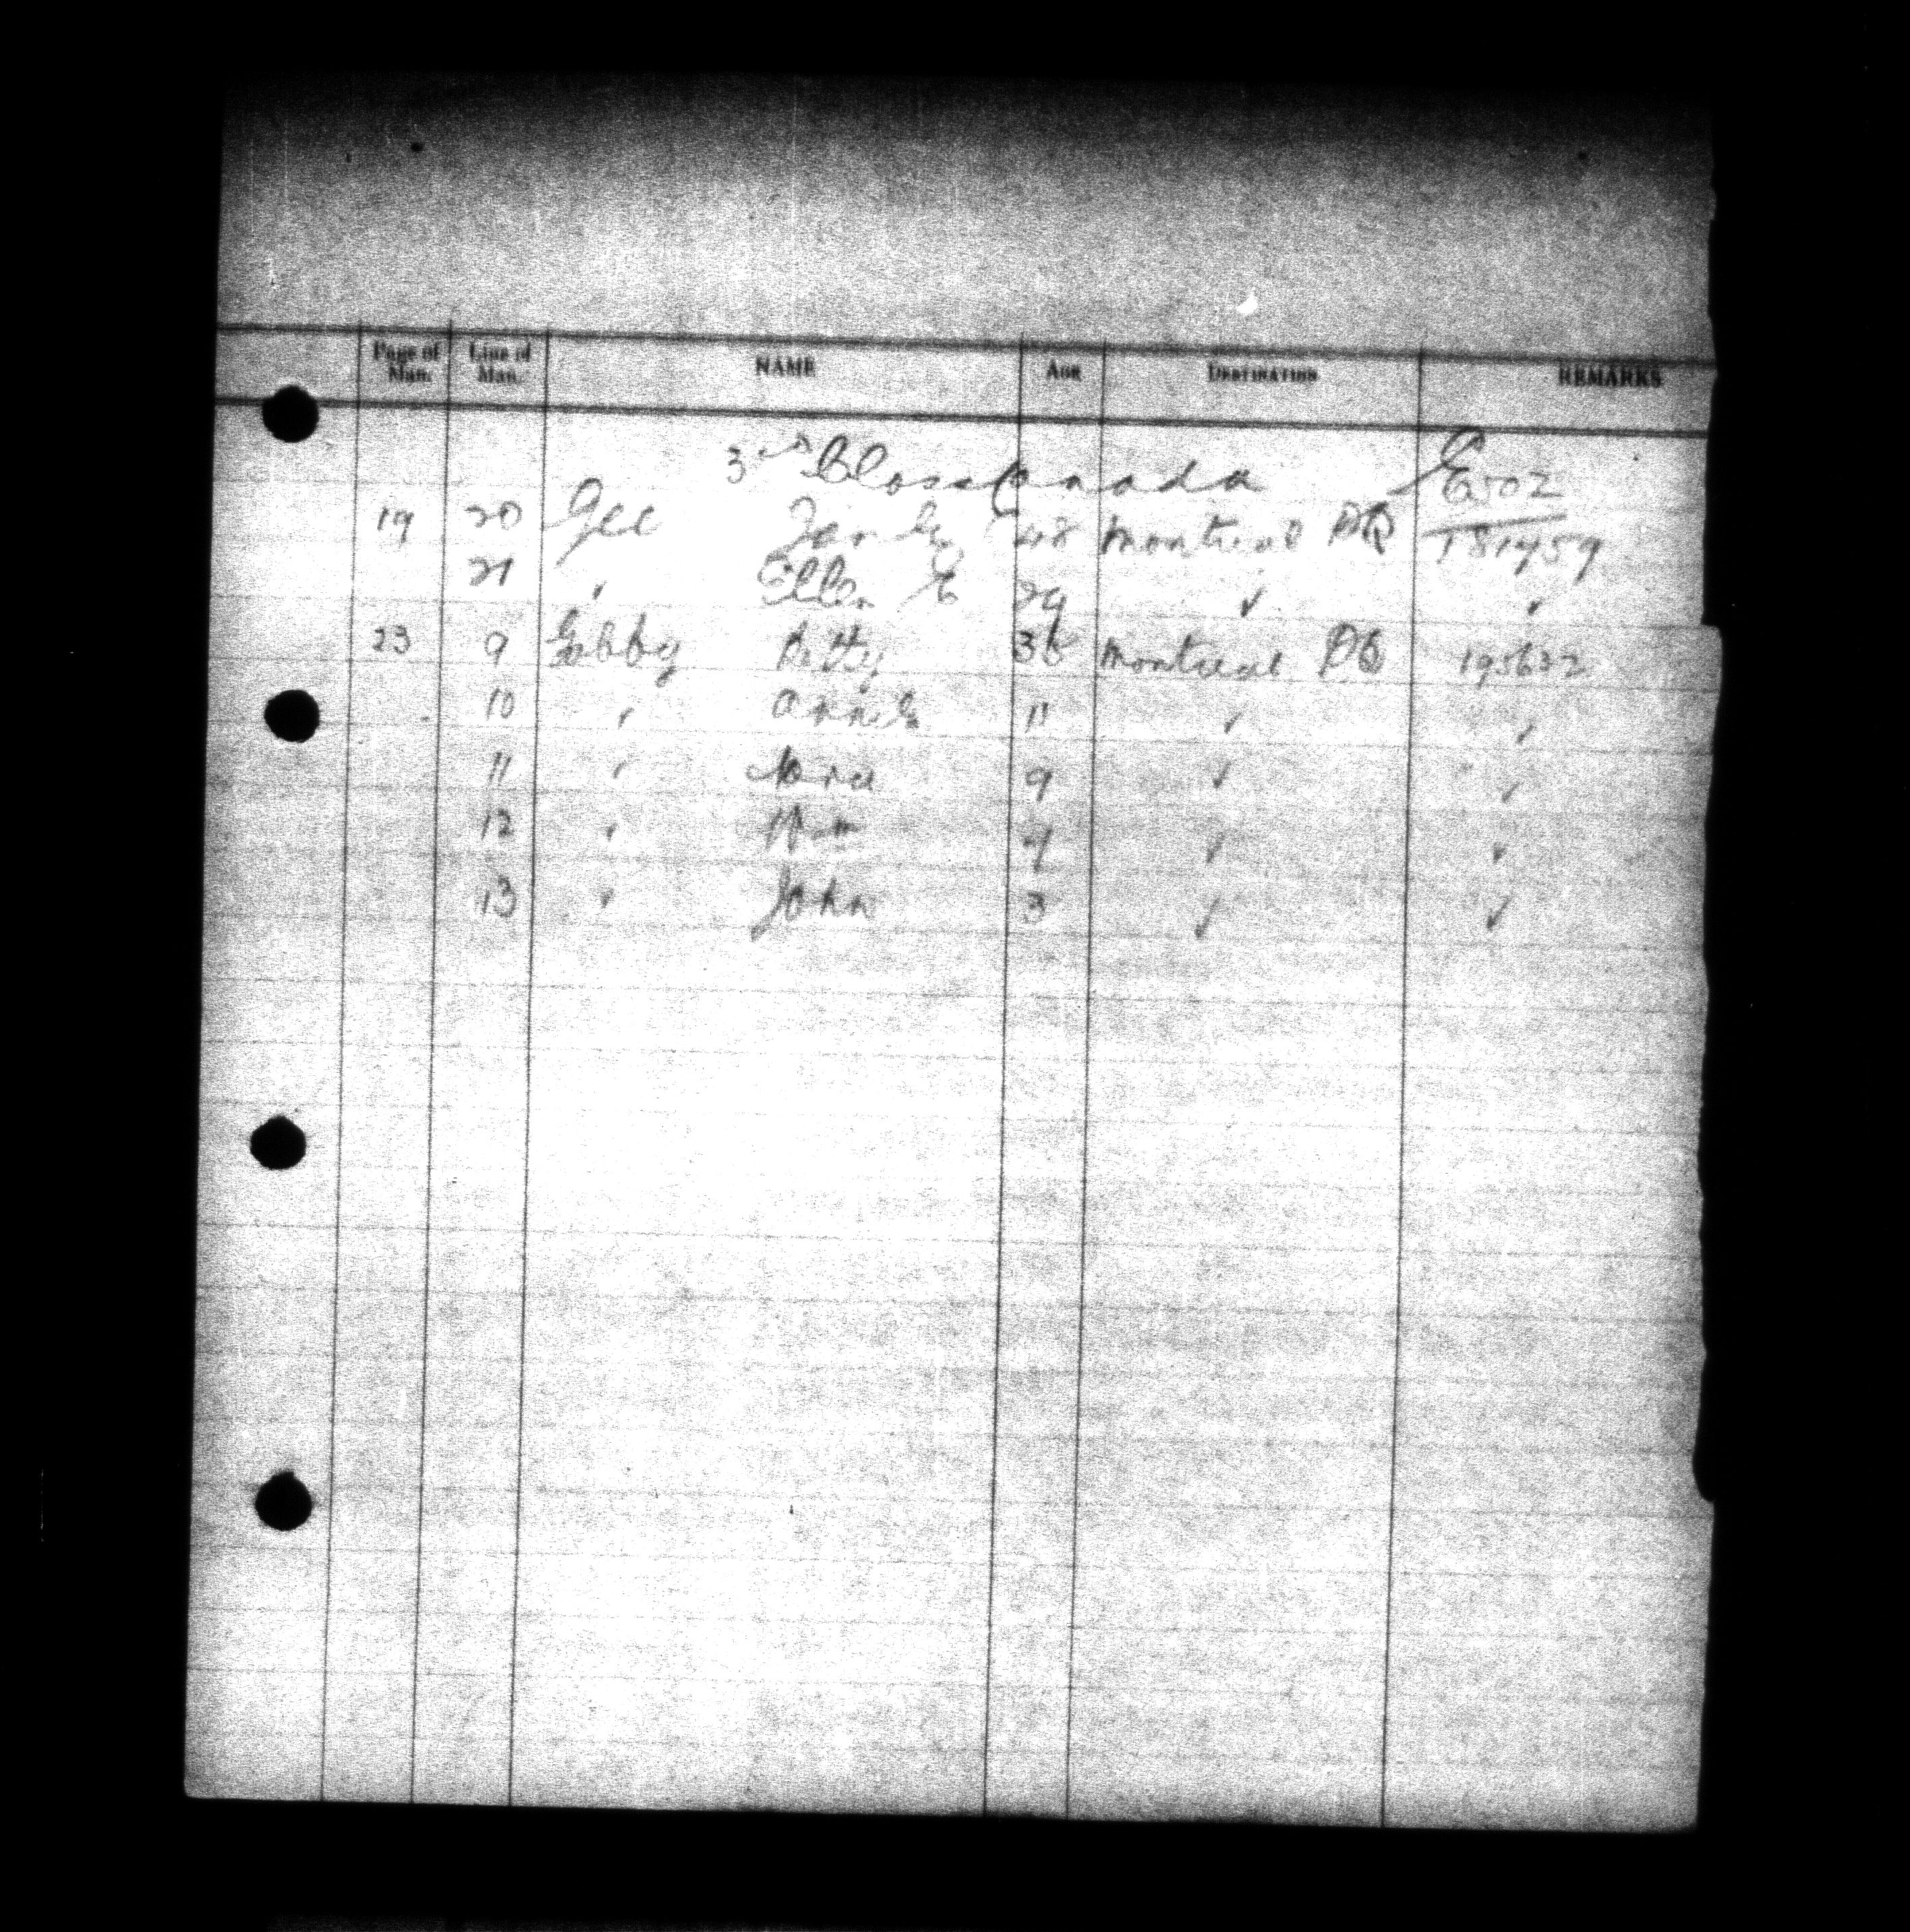 Page of Man. Line of Man. NAME AGE DESTINATION REMARKS
3rd Class Canada E502
19 20 Gee 48 Montreal PQ 181459
21 " Ellen E 29 ✓ ✓
23 9 Gebby Betty 36 Montreal PQ 195632
10 " Annie 11 ✓ ✓
11 " 9 ✓ ✓
12 " Wm ✓ ✓
13 " John 3 ✓ ✓